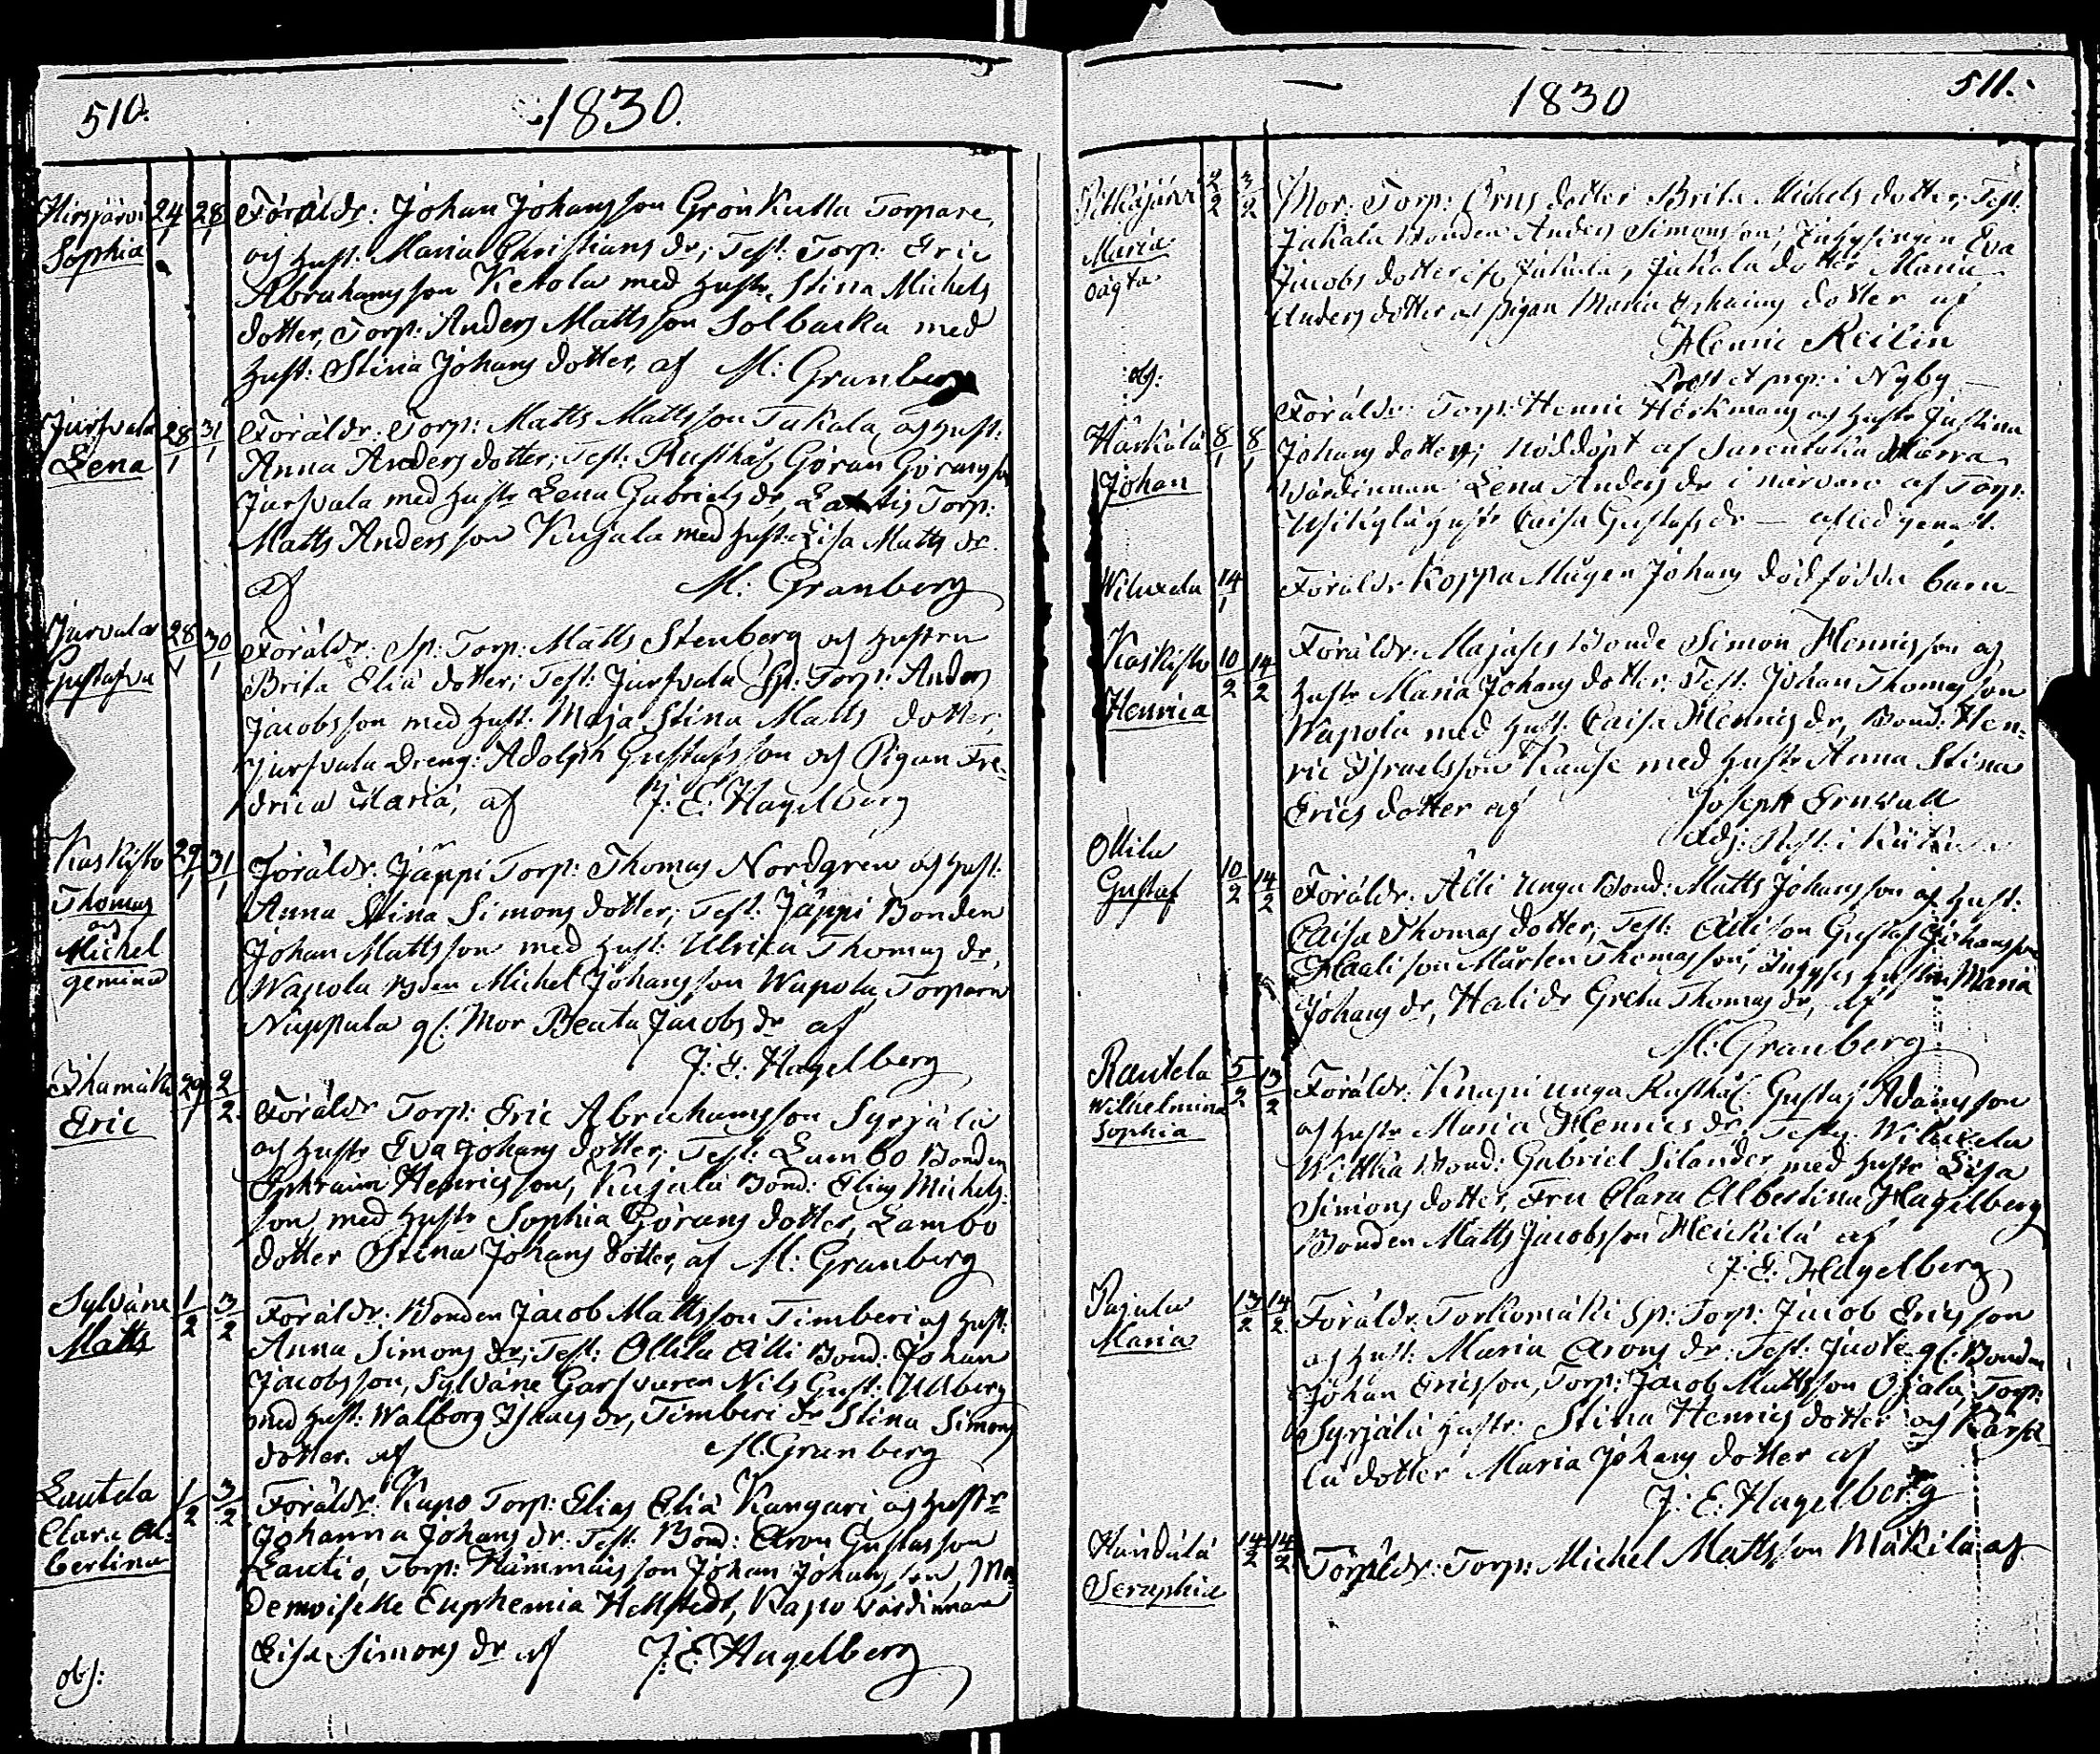 510.
1830.
Hirsjärvi 24/1 28/1 Föräldr: Johan Johansson Grönkulla Torpare,
Sophia och hust: Maria Christians dr; Test: Torp: Eric
Abrahamsson Ketola med hustr. Stina Michels
dotter, Torp: Anders Mattsson Solbacka med
hust: Stina Johans dotter, af M: Granberg
Jursvala 28/1 31/1 Föräldr: Torp: Matts Mattsson Takala, och hust:
Lena Anna Anders dotter; Test: Rusthål: Göran Göransson
Jursvala med hustr Lena Gabriels dr, Torp:
Matts Andersson Kujala med hust: Lisa Matts dr
af M: Granberg
Jursvala 28/1 30/1 Föräldr: Sp: Torp: Matts Stenberg och hustru
Gustafva Brita Eliä dotter; Test: Jursvala Sp: Torp: Anders
Jacobsson med hust: Maja Stina Matts dotter,
Jursvala Dreng: Adolph Gustafsson och Pigan Fre-
drica Maria, af J: E: Hagelberg
Kaskisto 29/1 31/1 Föräldr: Jäppi Torp: Thomas Nordgren och hust:
Thomas Anna Stina Simons dotter; Test: Jäppi Bonden
och
Michel Johan Mattsson med hust: Ulrica Thomas dr,
gemina Wapola Bden Michel Johansson Wapola, Torparn
Nuppula gl: Mor Beata Jacobs dr af
J: E: Hagelberg
Ihamäki 29/1 2/2 Föräldr Torp: Eric Abrahamsson Syrjälä
Eric och hustr Eva Johans dotter; Test: Lambo Bonden
Ephraim Henricsson, Kujala Bond: Elias Michels-
son med hustr Sophia Görans dotter, Lambo
dotter Stina Johans dotter, af M: Granberg
Sylväne 1/2 3/2 Föräldr: Bonden Jacob Mattsson Timberi och hust:
Matts Anna Simons dr; Test: Ollila Älli Bond: Johan
Jacobsson, Sylväne Garfvaren Nils Gust: Ullberg
med hust: Walborg Isaacs dr, Timberi dr Stina Simons
dotter. af M: Granberg
Lautela 1/2 3/2 Föräldr: Kapo Torp: Elias Eliä Kangari, och hustr
Clara Al- Johanna Johans dr. Test: Bond: Aron Gustafsson
bertina Lautio, Torp: Johan Johansson, Ma-
demoiselle Euphemia Hellstedt, Kapo Värdinnan
Lisa Simons dr af J: E: Hagelberg
obs:
511.
1830
Pitkäjärvi 2/2 3/2 Mor: Torp: Örns dotter Brita Michels dotter, Test:
Maria Juhala Bonden Anders Simonsson, Inhysingen Eva
oägta Jacobs dotter, Juhala dotter Maria
Anders dotter och pigan Maria dotter af
Henric Reilin
i Nyby
obs:
Härkälä 8/1 8/1 Föräldr: Torp: Henric Härkmans och hustr Justina
Johan Johans dotter; nöddöpt af Sarentaka
Värdinnan Lena Anders dr i närvaro af Torp:
hustr Caisa Gustafs dr — afled genast.
Wiluxela 14/1 Föräldr. Koppa Mågen Johans dödfödda barn
Kaskisto 10/2 14/2 Föräldr: Bonde Simon Henricsson och
Henrica hustr Maria Johans dotter: Test: Johan Thomasson
Wapola med hust: Caisa Henrics dr, Bond: Hen-
ric Israelsson Kause med hustr Anna Stina
Erics dotter af Joseph Grnvall
Adj:
Ollila
Gustaf 10/2 14/2 Föräldr. Älli unga Bond: Matts Johansson och hust:
Caisa Thomas dotter; Test: Älli son Gustaf Johansson
Haali son Mårten Thomasson, Inhyses hustrun Maria
Johans dr, Hali dr Greta Thomas dr, af
M: Granberg
Rautela 5/2 13/2 Föräldr: Knapi unga Rusthål: Gustaf Adamsson
Wilhelmina och hustr Maria Henrics dr, Test: Wiluxela
Sophia Bond: Gabriel Silander med hustr Lisa
Simons dotter, Fru Clara Albertina Hagelberg
Bonden Matts Jacobsson Heickilä af
J: E: Hagelberg
Pajula 13/2 14/2 Föräldr: Torkomäki Sp: Torp: Jacob Ericsson
Maria och hust: Maria Arons dr: Test: gl: Bonden
Johan Ericsson, Torp: Jacob Mattsson Ojala, Torp:
Syrjälä hustr: Stina Henrics dotter och
lä dotter Maria Johans dotter af
J: E: Hagelberg
Händälä 14/2 14/2 Föräldr: Torp: Michel Mattsson Mäkilä af
Seraphia